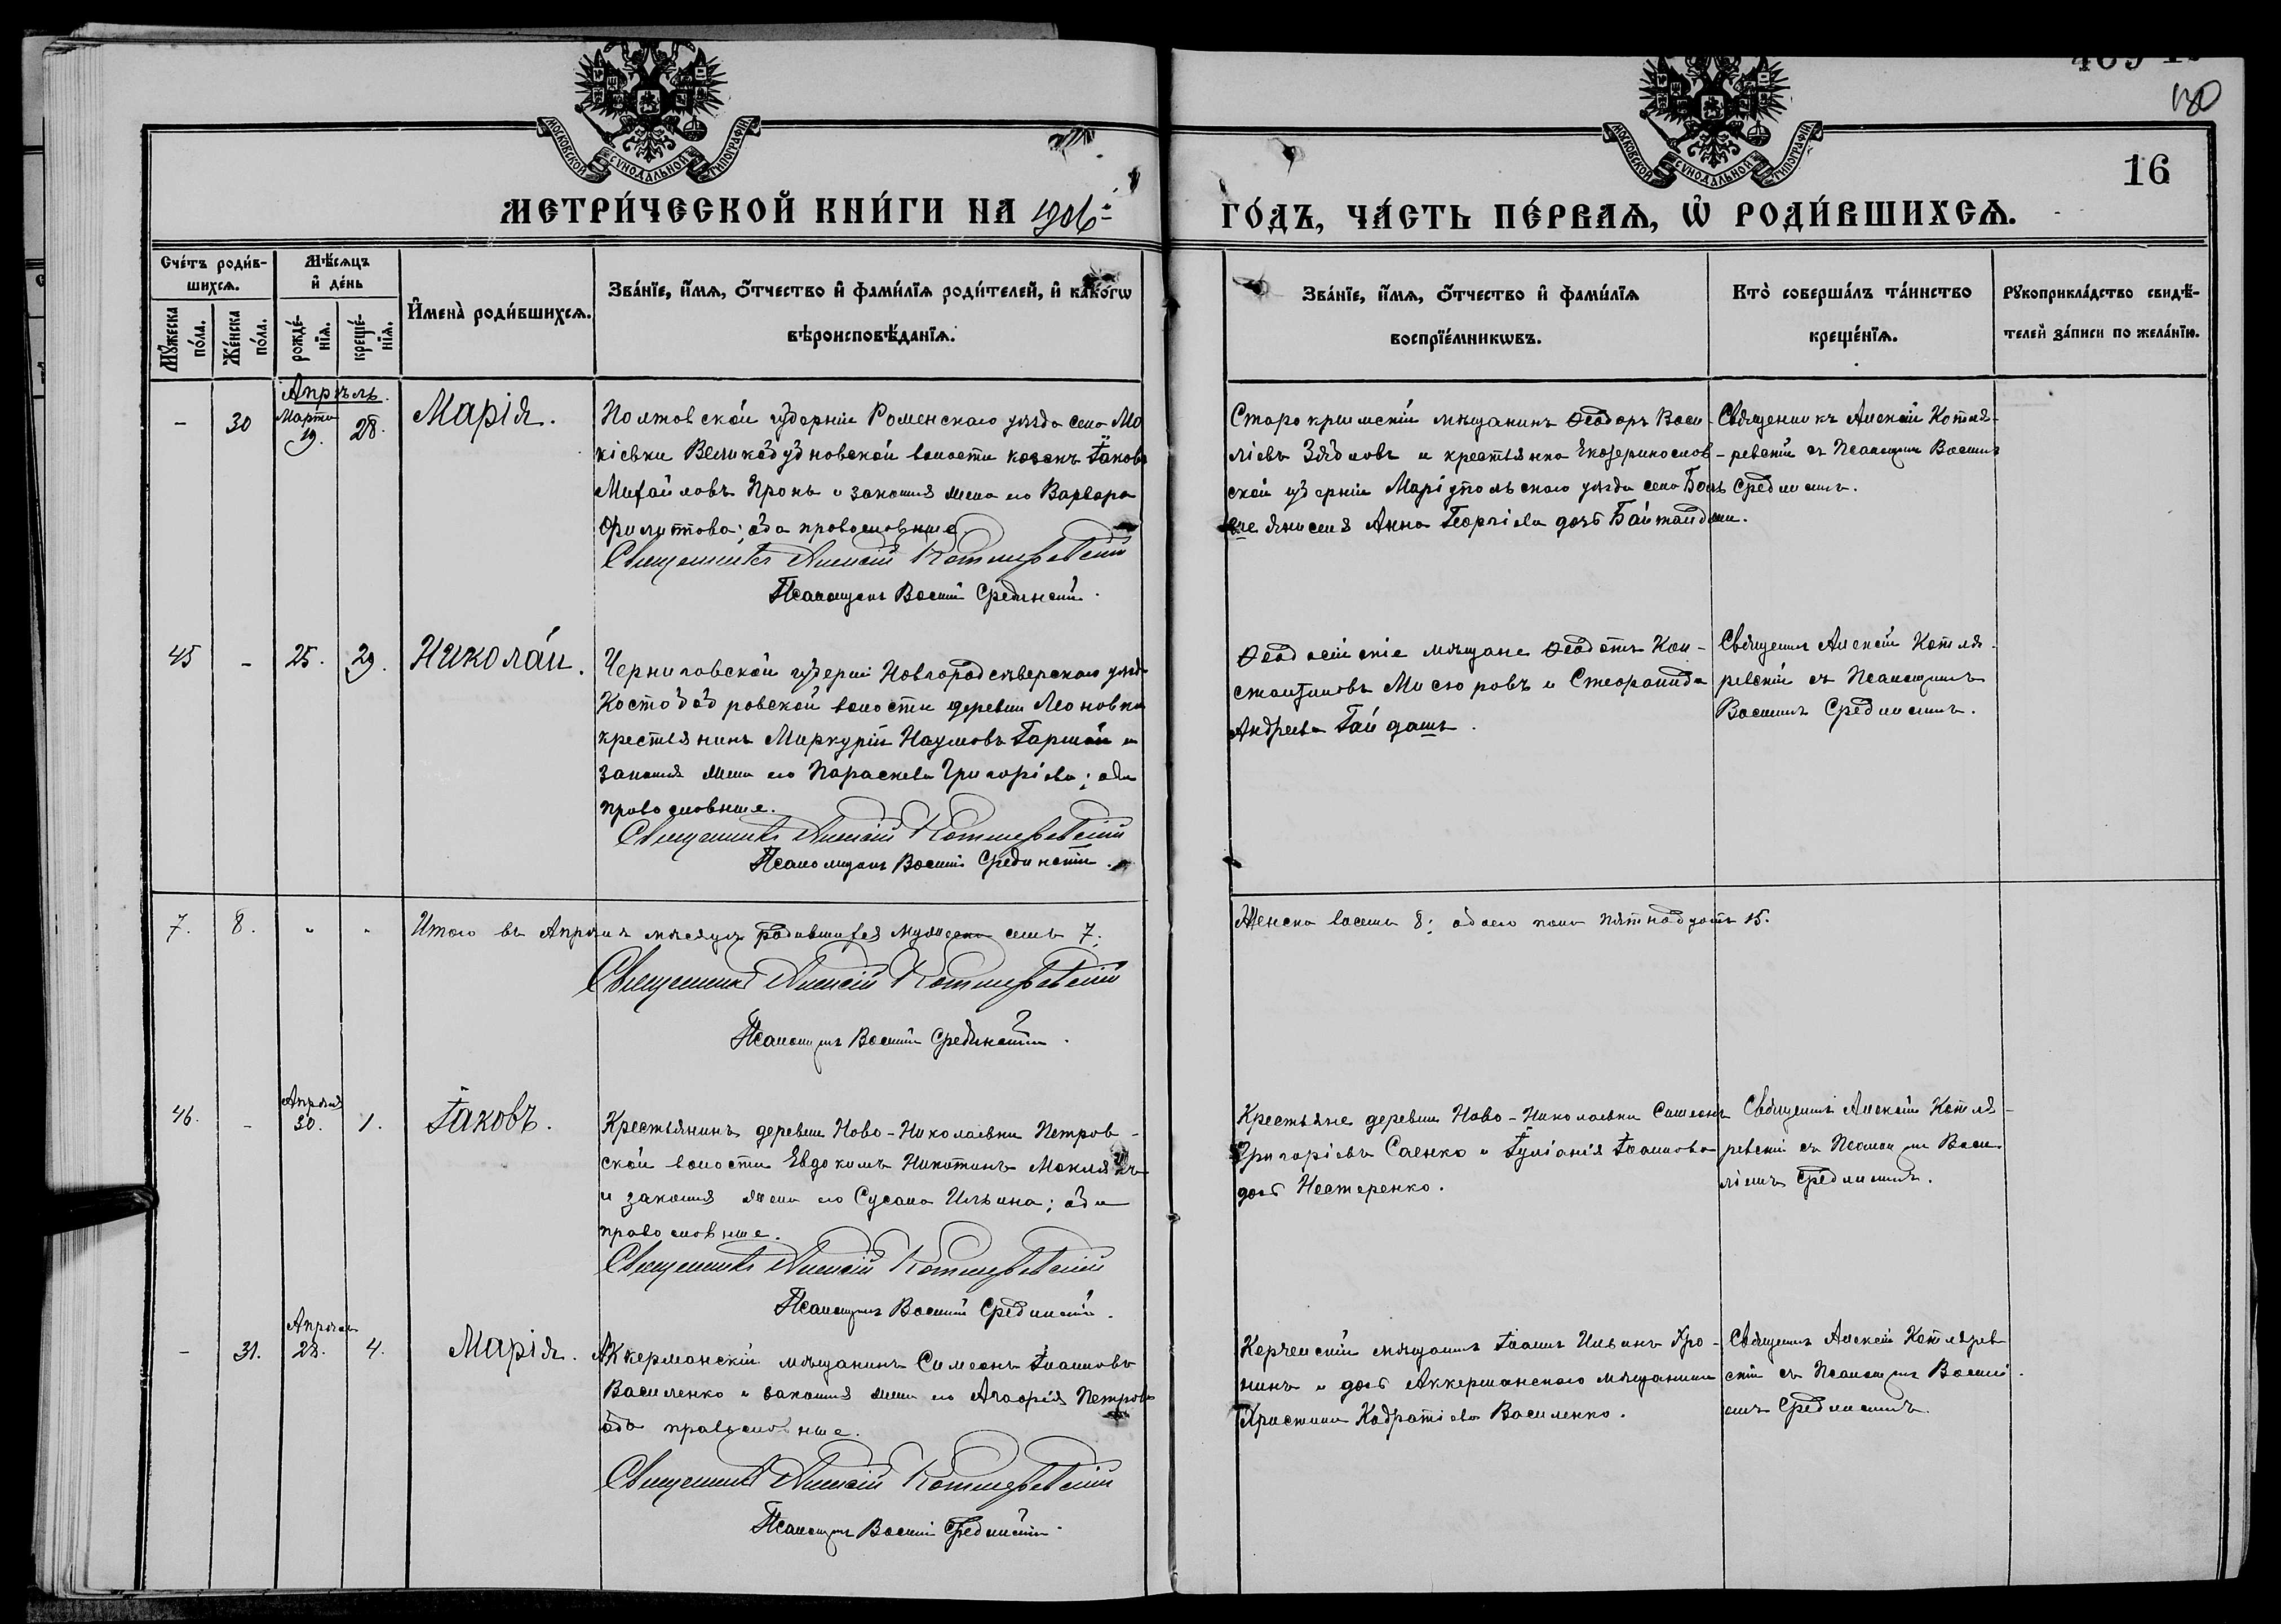 469
130
16
МОСКОВСКОЙ СѴНОДАЛЬНОЙ ТИПОГРАФІИ
МОСКОВСКОЙ СѴНОДАЛЬНОЙ ТИПОГРАФІИ
МЕТРИ́ЧЕСКОЙ КНИ́ГИ НА 1906 ГО́ДЪ, ЧА́СТЬ ПЕ́РВАѦ, Ѡ҆ РОДИ́ВШИХСѦ.
Сче́тъ роди́в-
шихсѧ.
Мѣ́сѧцъ
и҆ де́нь
Мꙋ́жеска по́ла.
Же́нска по́ла.
рожде́-
нїѧ.
креще́-
нїѧ.
И҆мена̀ роди́вшихсѧ.
Зва́нїе, и҆́мѧ, ѻ҆́тчество и҆ фами́лїѧ роди́телей, и҆ како́гѡ
вѣроисповѣ́данїѧ.
Зва́нїе, и҆́мѧ, ѻ҆́тчество и҆ фами́лїѧ
воспрїе́мникѡвъ.
Кто̀ соверша́лъ та́инство
креще́нїѧ.
Рꙋкоприкла́дство свидѣ́-
телей за́писи по жела́нїю.
Апрѣль.
- 30 Марта 19. 28. Марія.
Полтовской губерніи Роменскаго уѣзда села Мо
кіевки Великобудновской волости козакъ Іаковъ
Михайловъ Пронь и законная жена его Варвара
Филиппова; оба православные
Священникъ Алексій Котляревскій
Псаломщикъ Василій Срединскій.
Старокрымскій мѣщанинъ Ѳеодоръ Васи-
ліевъ Зябловъ и крестьянка Екатеринослав-
ской губерніи Маріупольскаго уѣзда села Боль
ше Янисоля Анна Георгіева дочь
Священникъ Алексій Котля-
ревскій съ Псаломщик. Василіем
Срединскимъ.
45 - 25. 29. Николай.
Черниговской губерніи Новгородсѣверскаго уѣзда
Костобобровской волости деревни Леоновки
крестьянинъ Меркурій Наумовъ и
законная жена его Параскева Григоріева; оба
православные.
Священникъ Алексій Котляревскій
Псаломщикъ Василій Срединскій.
Ѳеодосійскіе мѣщане Ѳеодотъ Кон-
стантиновъ Мисюровъ и Стефанида
Андреева Гайдашъ.
Священникъ Алексій Котля-
ревскій съ Псаломщикомъ
Василіемъ Срединскимъ.
7. 8. " " Итого въ Апрѣлѣ мѣсяцѣ родившихся мужеска семь 7;
Женска восемь 8; обоего пола пятнадцать 15.
Священникъ Алексій Котляревскій
Псаломщикъ Василій Срединскій.
46. - Апрѣля 30. 1. Іаковъ.
Крестьянинъ деревни Ново-Николаевки Петров-
ской волости Евдокимъ Никитинъ
и законная жена его Сусана Ильина; оба
православные.
Священникъ Алексій Котляревскій
Псаломщикъ Василій Срединскій.
Крестьяне деревни Ново-Николаевки Симеонъ
Григоріевъ Саенко и Іуліанія Іоаннова
дочь Нестеренко.
Священникъ Алексій Котля-
ревскій съ Псаломщик. Васи
ліемъ Срединскимъ.
- 31. Апрѣля 28. 4. Марія.
Аккерманскій мѣщанинъ Симеонъ Іоанновъ
Василенко и законная жена его Агафія Петрова
оба православные.
Священникъ Алексій Котляревскій
Псаломщикъ Василій Срединскій.
Керченскій мѣщанинъ Іоаннъ Ильинъ Про-
нинъ и дочь Аккерманскаго мѣщанина
Христина Кодратіева Василенко.
Священникъ Алексій Котлярев
скій съ Псаломщик. Василі-
емъ Срединскимъ.